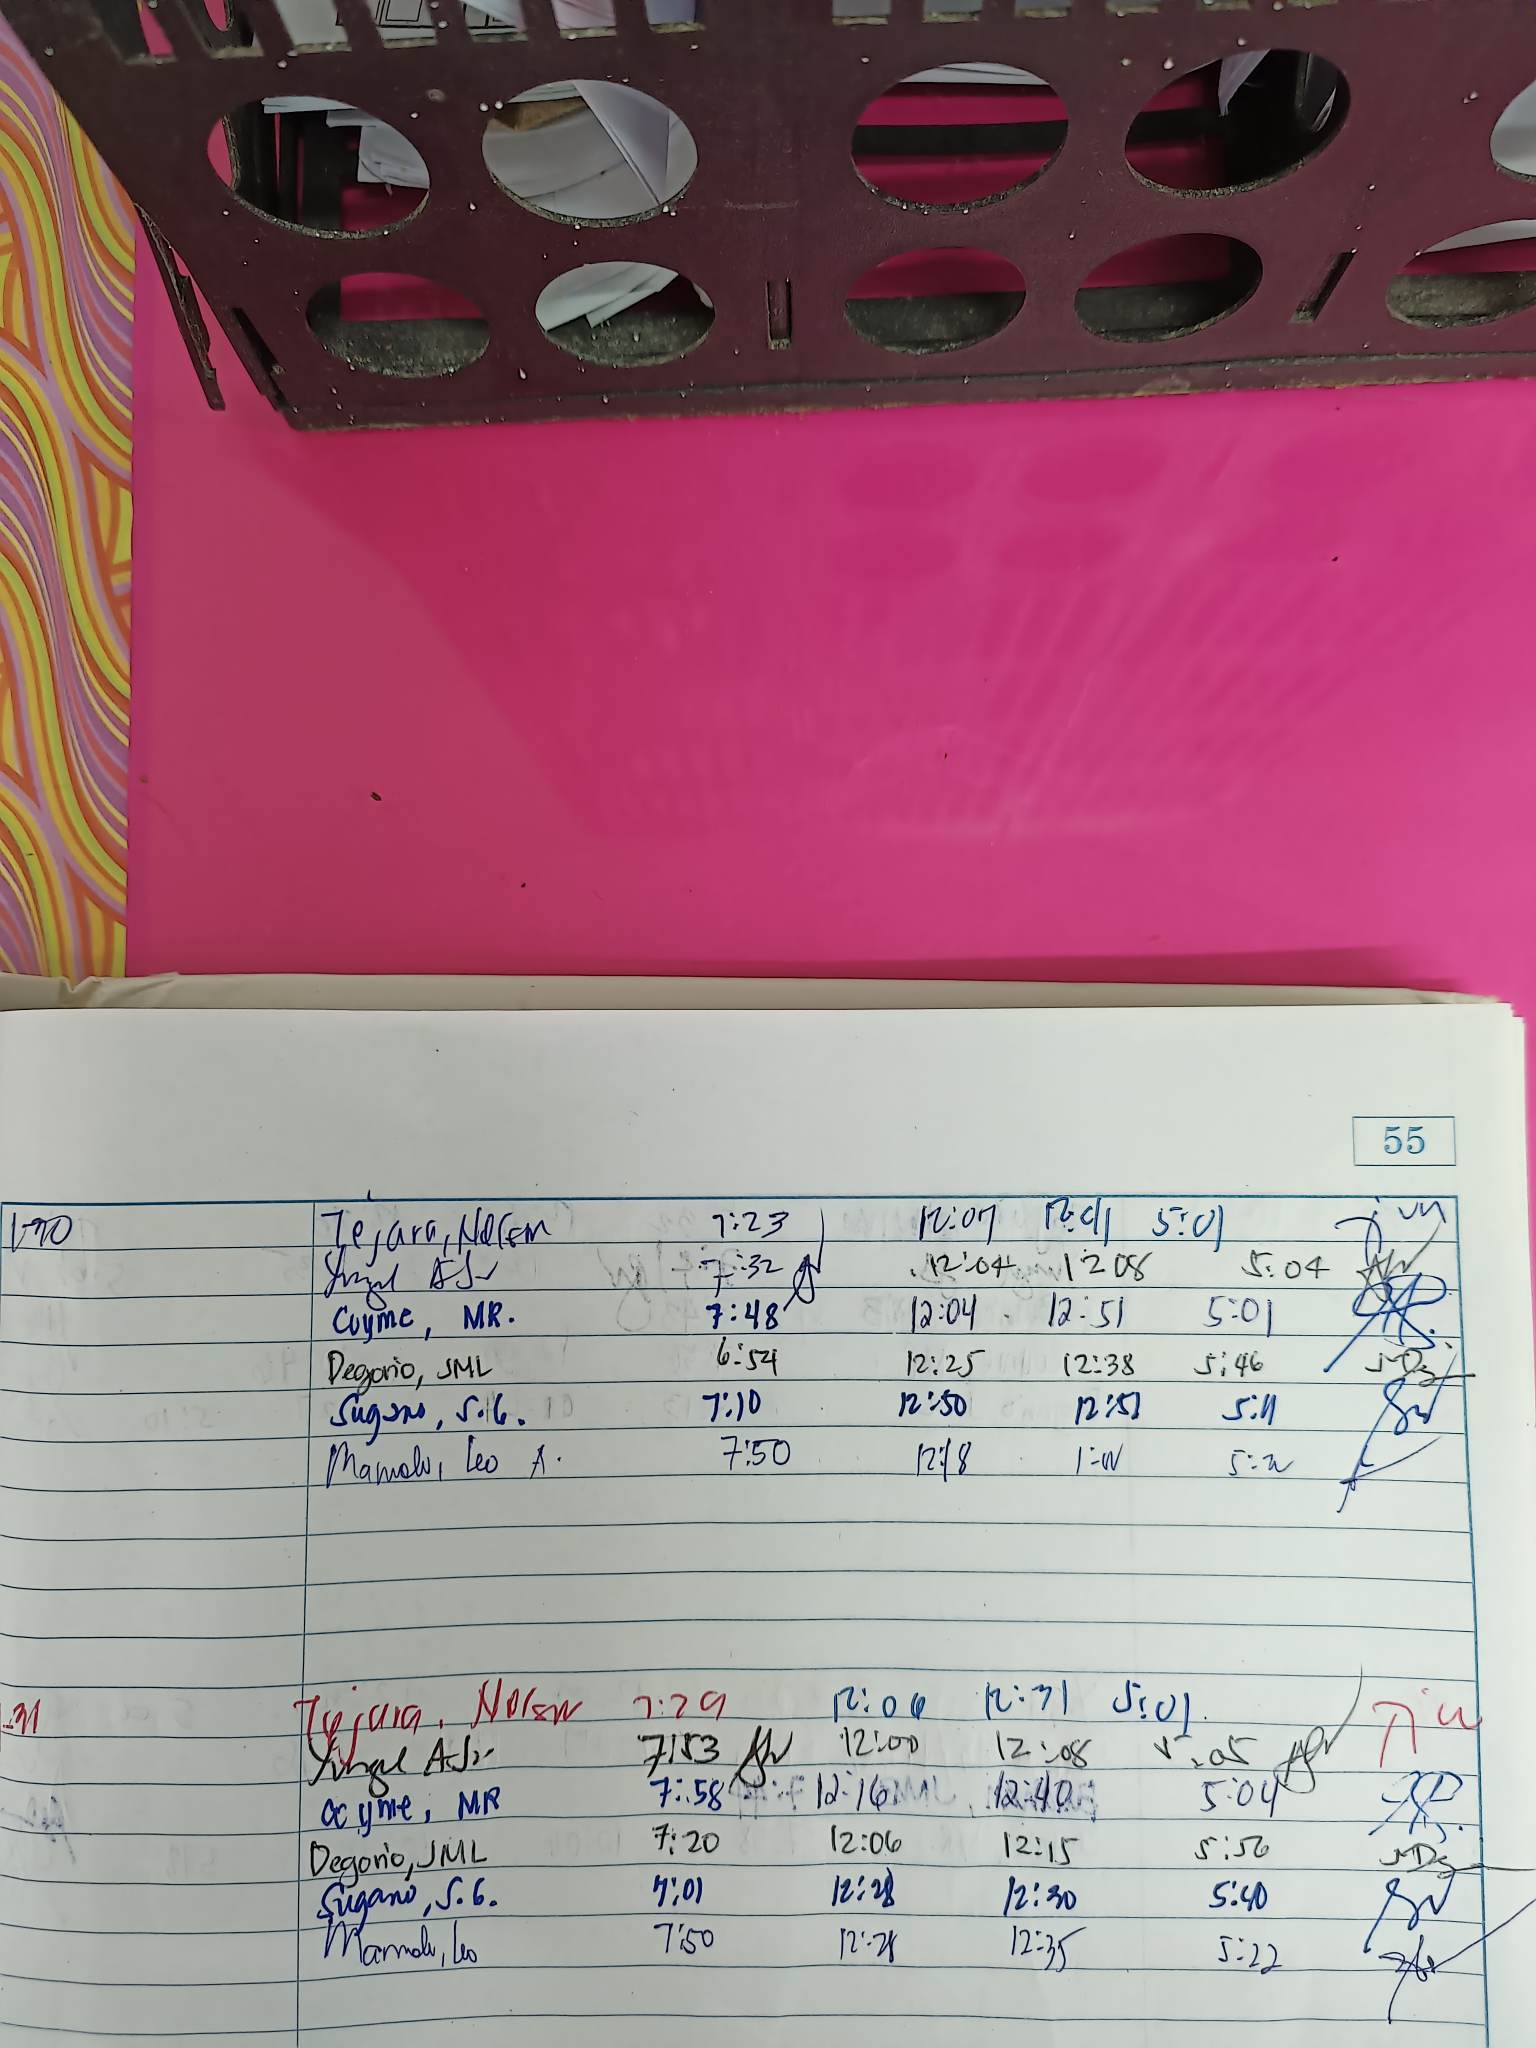 55
1-30 Tejara, Nolem 7:23 12:07 12:41 5:01
A.Jr 7:32 12:04 1208 5:04
Cuyme, MR. 7:48 12:04 12:51 5:01
Degorio, JML 6:54 12:25 12:38 5:46
Sugano, S.G. 7:10 12:50 12:51 5:11
Leo A. 7:50 12:18
.31 Tejara, Nolem 7:29 12:06 12:31 5:01
A.Jr 7:53 12:00 12:08 5:05
Cuyme, MR 7:58 12:16 12:40 5:04
Degorio, JML 7:20 12:06 12:15 5:56
Sugano, S.G. 7:01 12:28 12:30 5:40
Leo 7:50 12:28 12:35 5:22